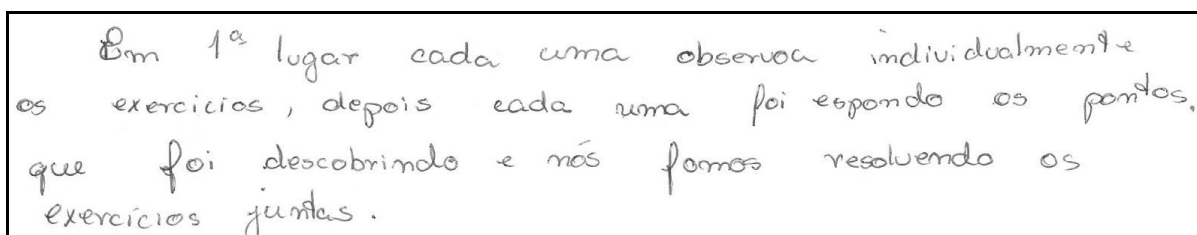 Em 1º lugar cada uma observou individualmente
os exercicios, depois cada uma foi espondo os pontos,
que foi descobrindo e nós fomos resolvendo os
exercícios juntas.